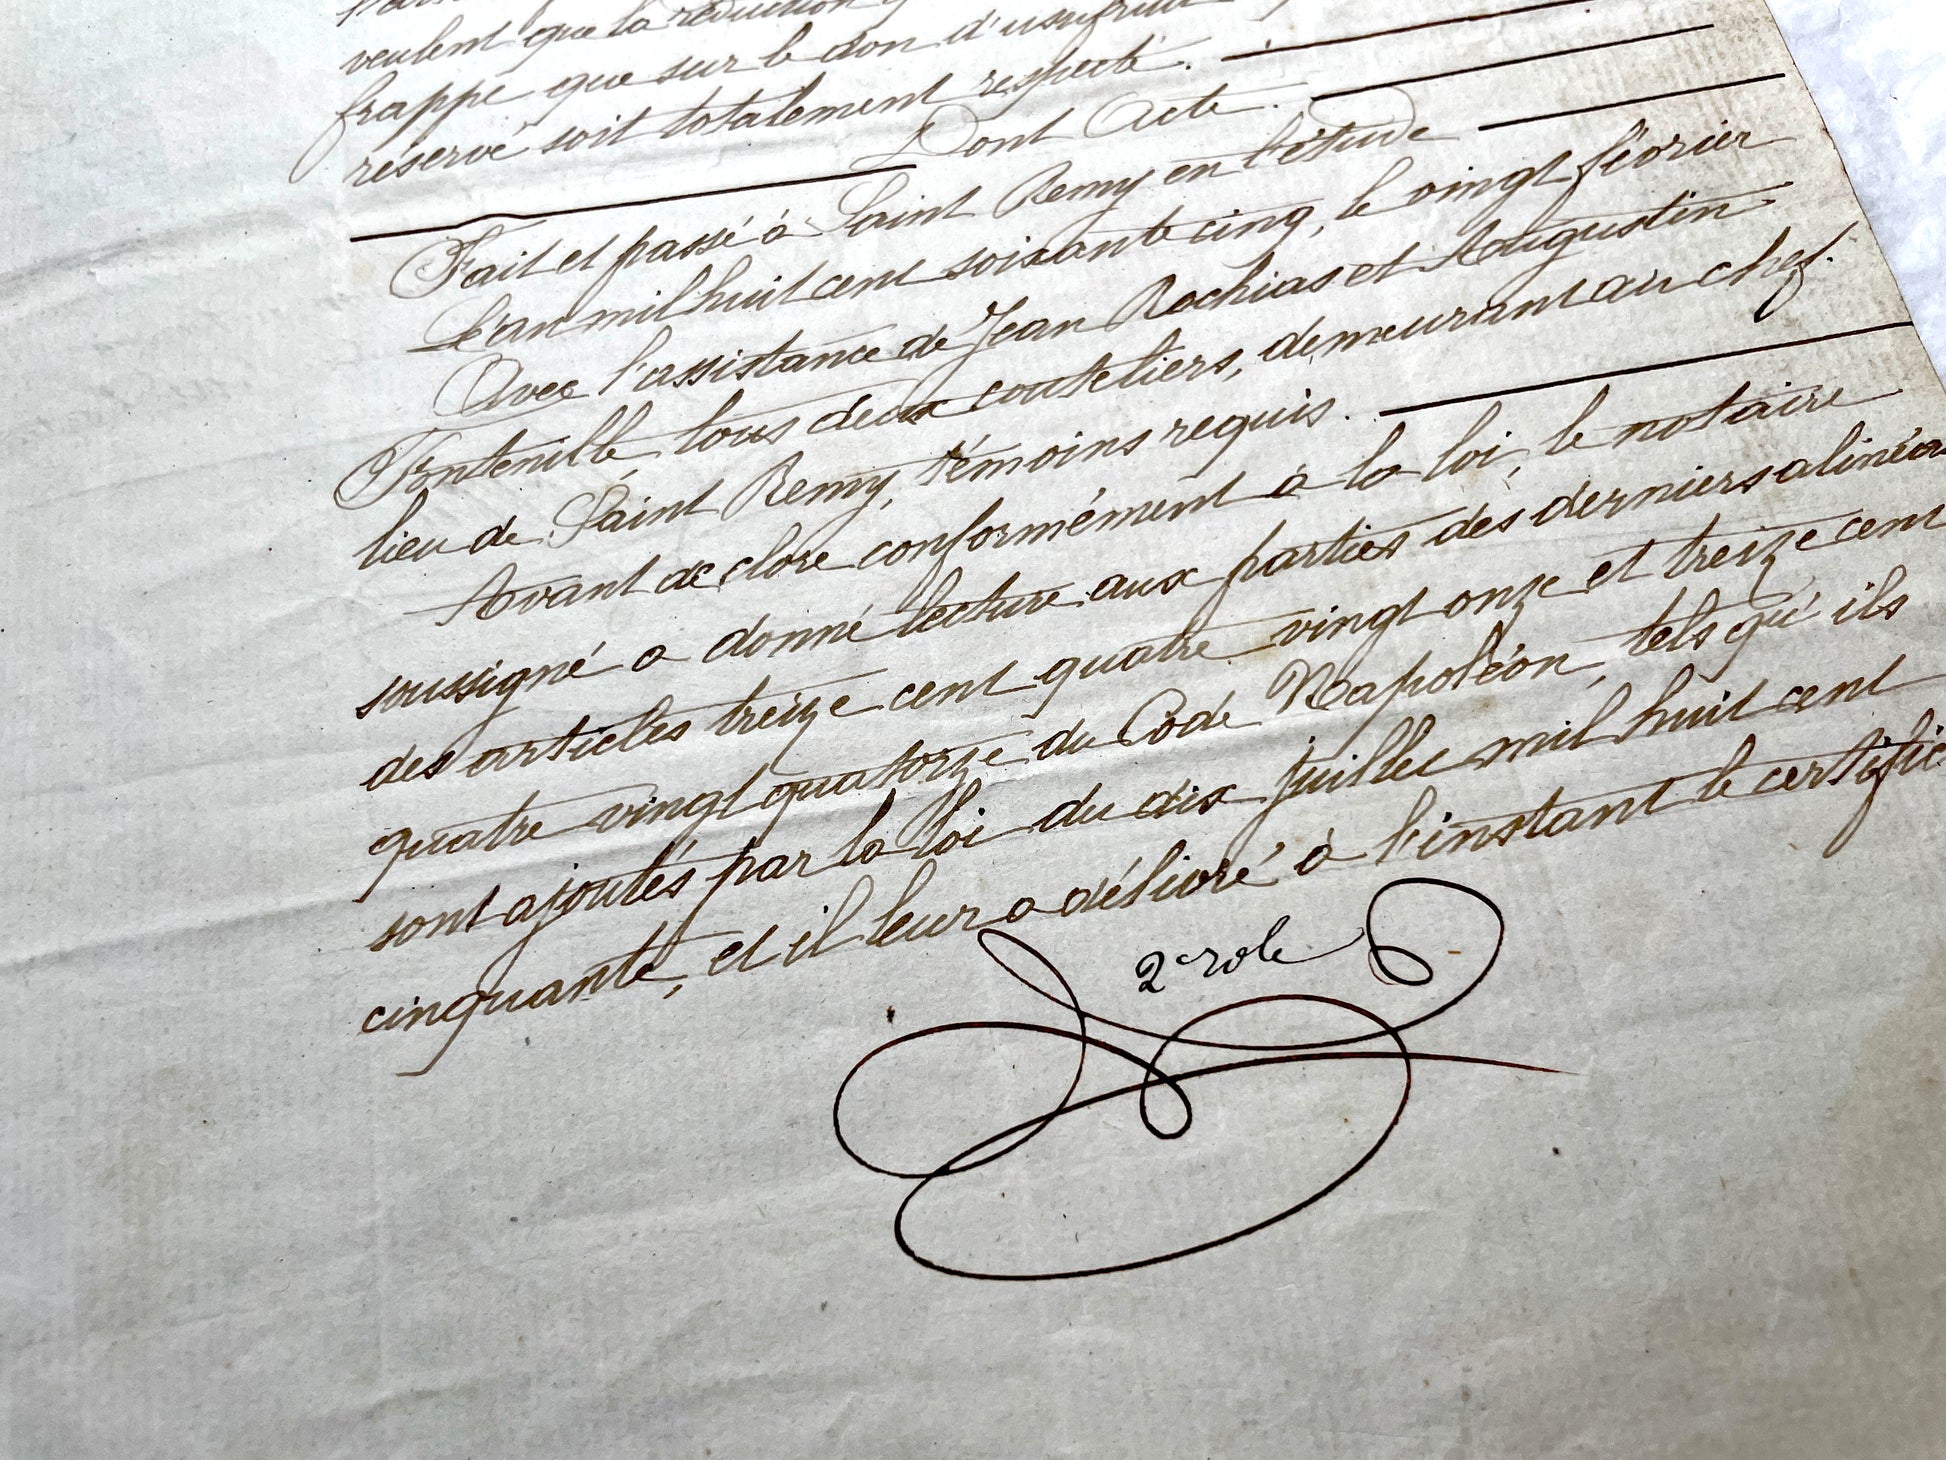 veulent que la réduction
frappe que sur le don d'usufruit
réservé soit totalement respecté.
Dont Acte.
Fait et passé à Saint Remy en l'étude
L'an mil huit cent soixante cinq, le vingt février
Avec l'assistance de Jean Rochias et Augustin
Fontenille, tous deux couteliers, demeurant au chef.
lieu de Saint Remy, témoins requis.
Avant de clore conformément à la loi, le notaire
soussigné a donné lecture aux parties des derniers alinéa
des articles treize cent quatre vingt onze et treize cent
quatre vingt quatorze du Code Napoléon, tels qu'ils
sont ajoutés par la loi du dix juillet mil huit cent
cinquante, et il leur a délivré à l'instant le certific
2e role